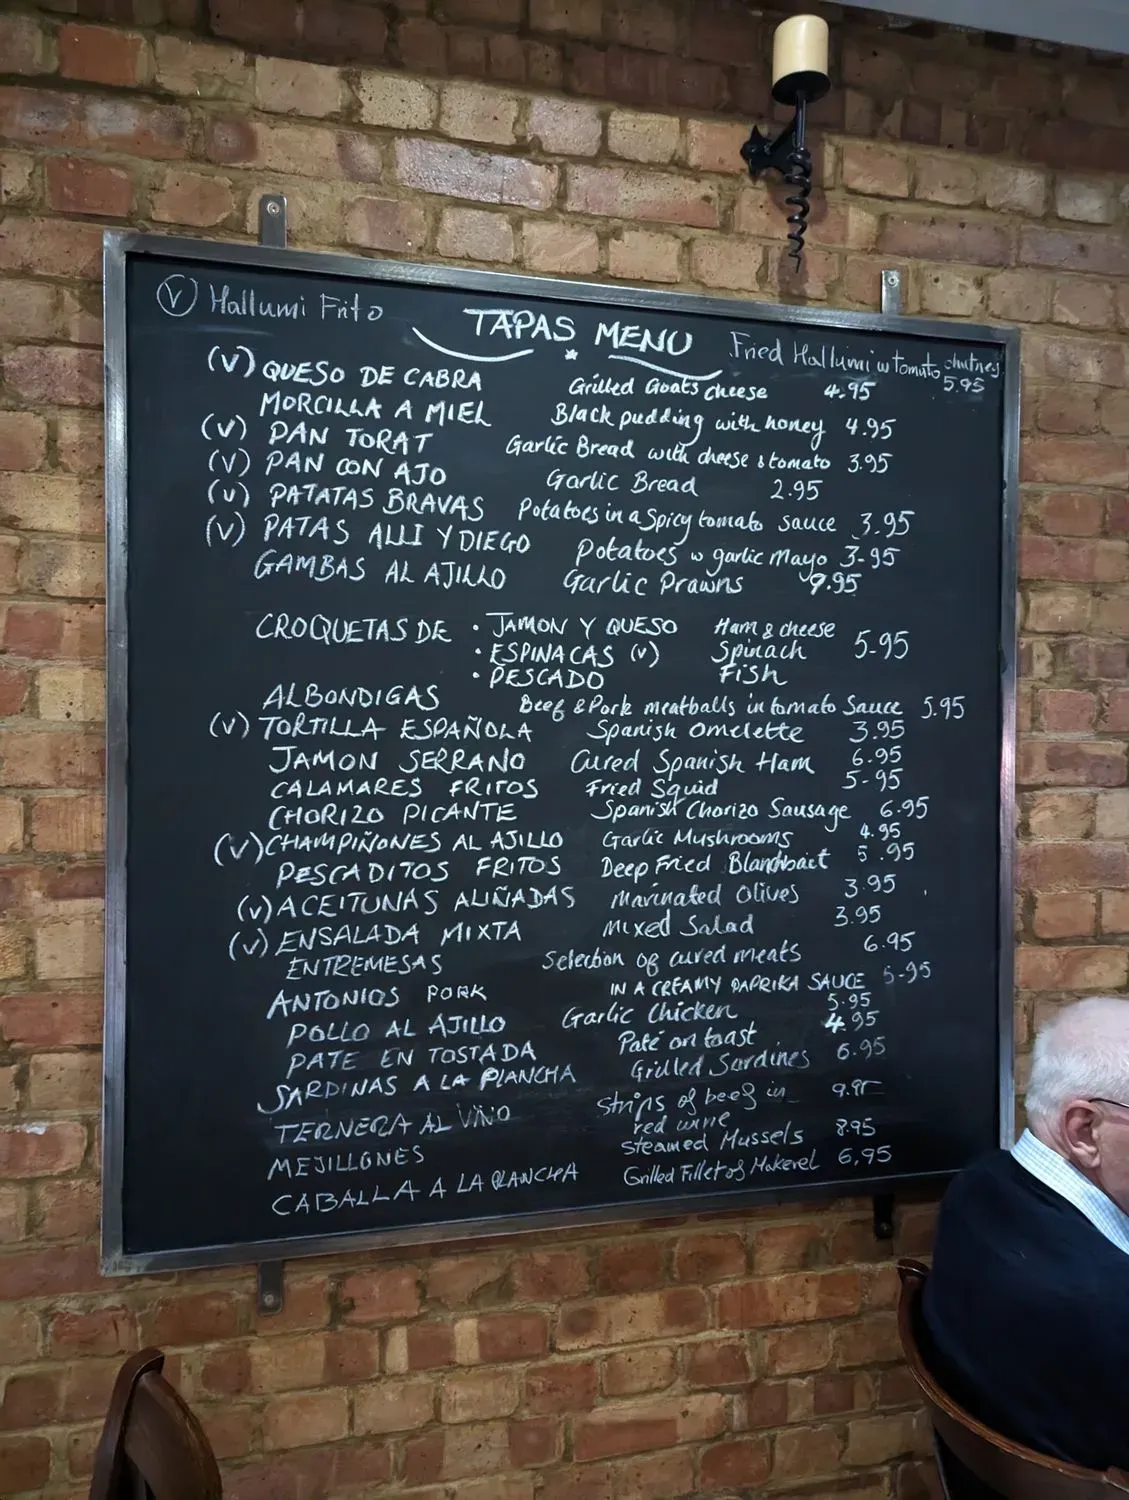 (V) Hallumi Frito
TAPAS MENU
Fried Hallumi w tomato chutney 5.95
(V) QUESO DE CABRA Grilled Goats cheese 4.95
MORCILLA A MIEL Black pudding with honey 4.95
(V) PAN TORAT Garlic Bread with cheese & tomato 3.95
(V) PAN CON AJO Garlic Bread 2.95
(V) PATATAS BRAVAS Potatoes in a Spicy tomato sauce 3.95
(V) PATAS ALLI Y DIEGO Potatoes w garlic Mayo 3-95
GAMBAS AL AJILLO Garlic Prawns 9.95
CROQUETAS DE • JAMON Y QUESO Ham & cheese 5-95
• ESPINACAS (V) Spinach
• PESCADO Fish
ALBONDIGAS Beef & Pork meatballs in tomato Sauce 5.95
(V) TORTILLA ESPAÑOLA Spanish Omelette 3.95
JAMON SERRANO Cured Spanish Ham 6.95
CALAMARES FRITOS Fried Squid 5-95
CHORIZO PICANTE Spanish Chorizo Sausage 6.95
(V) CHAMPIÑONES AL AJILLO Garlic Mushrooms 4.95
PESCADITOS FRITOS Deep Fried 5.95
(V) ACEITUNAS ALIÑADAS Marinated Olives 3.95
(V) ENSALADA MIXTA Mixed Salad 3.95
ENTREMESAS Selection of cured meats 6.95
ANTONIOS PORK IN A CREAMY PAPRIKA SAUCE 5-95
POLLO AL AJILLO Garlic Chicken 5.95
PATE EN TOSTADA Paté on toast 4.95
SARDINAS A LA PLANCHA Grilled Sardines 6.95
TERNERA AL VINO Strips of beef in
red wine
MEJILLONES Steamed Mussels 8.95
CABALLA A LA PLANCHA Grilled Fillet of Makerel 6,95